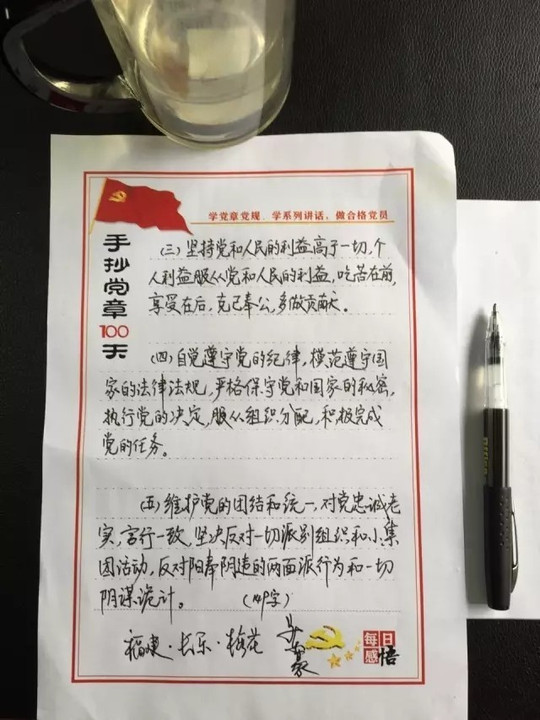 学党章党规、学系列讲话，做合格党员
手抄党章100天
（三）坚持党和人民的利益高于一切，个
人利益服从党和人民的利益，吃苦在前，
享受在后，克己奉公，多做贡献。
（四）自觉遵守党的纪律，模范遵守国
家的法律法规，严格保守党和国家的秘密，
执行党的决定，服从组织分配，积极完成
党的任务。
（五）维护党的团结和统一，对党忠诚老
实，言行一致，坚决反对一切派别组织和小集
团活动，反对阳奉阴违的两面派行为和一切
阴谋诡计。
福建·长乐·梅花
每日
感悟